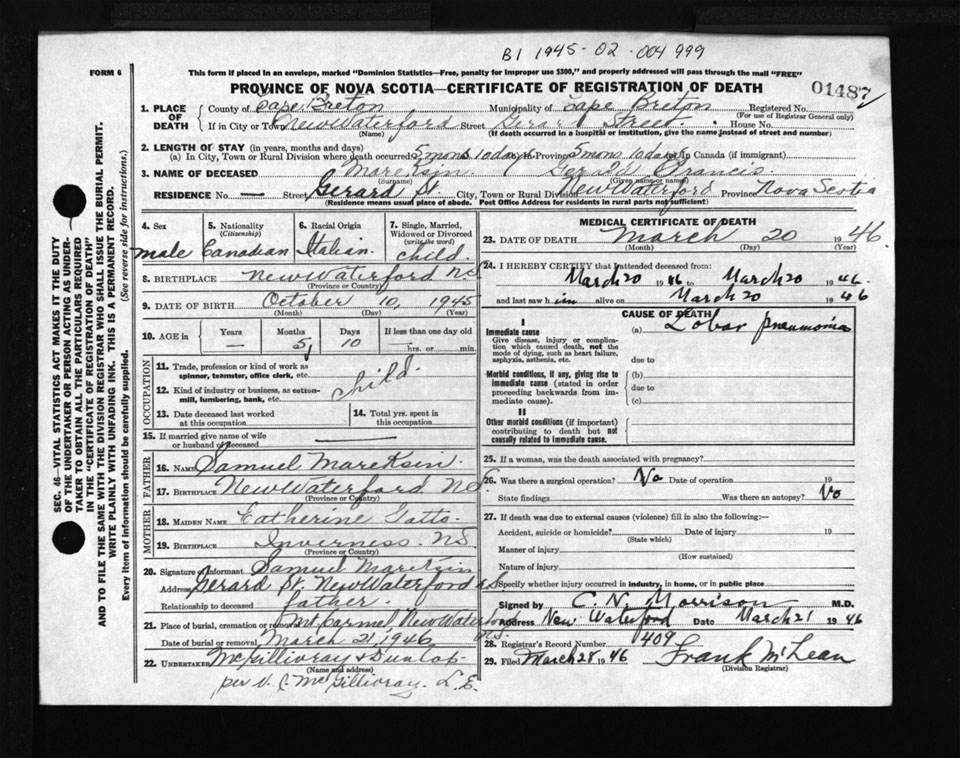 B1 1945-02-004999
FORM 6
This form if placed in an envelope, marked "Dominion Statistics—Free, penalty for improper use $300," and properly addressed will pass through the mail "FREE"
PROVINCE OF NOVA SCOTIA—CERTIFICATE OF REGISTRATION OF DEATH
01487
1. PLACE OF DEATH County of Cape Breton Municipality of Cape Breton Registered No.
(For use of Registrar General only)
If in City or Town New Waterford Street Gerard Street House No.
(Name) (If death occurred in a hospital or institution, give the name instead of street and number)
2. LENGTH OF STAY (in years, months and days)
(a) In City, Town or Rural Division where death occurred 5 mons 10 days (b) In Province 5 mons 10 days (c) In Canada (if immigrant)
3. NAME OF DECEASED Mareksin Gerald Francis
(Surname) (Given name or names)
RESIDENCE No. — Street Gerard St. City, Town or Rural Division New Waterford Province Nova Scotia
(Residence means usual place of abode. Post Office Address for residents in rural parts not sufficient)
4. Sex 5. Nationality (Citizenship) 6. Racial Origin 7. Single, Married, Widowed or Divorced (write the word)
male Canadian Italian. child.
8. BIRTHPLACE New Waterford NS
(Province or Country)
9. DATE OF BIRTH October 10, 1945
(Month) (Day) (Year)
10. AGE in Years Months Days If less than one day old
— 5 10 hrs. or min.
OCCUPATION
11. Trade, profession or kind of work as spinner, teamster, office clerk, etc.
12. Kind of industry or business, as cotton-mill, lumbering, bank, etc.
child.
13. Date deceased last worked at this occupation
14. Total yrs. spent in this occupation
15. If married give name of wife or husband of deceased
FATHER
16. NAME Samuel Mareksin.
17. BIRTHPLACE New Waterford NS.
(Province or Country)
MOTHER
18. MAIDEN NAME Catherine Gatto.
19. BIRTHPLACE Inverness. NS.
(Province or Country)
20. Signature of Informant Samuel Marekzin
Address Gerard St. New Waterford N.S
Relationship to deceased father.
21. Place of burial, cremation or removal Mt Carmel, New Waterford NS.
Date of burial or removal March 21, 1946
22. UNDERTAKER McGillivray & Dunlop.
(Name and address)
per V. J. McGillivray. L.E.
MEDICAL CERTIFICATE OF DEATH
23. DATE OF DEATH March 20 1946.
(Month) (Day) (Year)
24. I HEREBY CERTIFY that I attended deceased from:
March 20 1946 to March 20 1946
and last saw him alive on March 20 1946
CAUSE OF DEATH
I
Immediate cause
Give disease, injury or complication which caused death, not the mode of dying, such as heart failure, asphyxia, asthenia, etc.
(a) Lobar pneumonia
due to
Morbid conditions, if any, giving rise to immediate cause (stated in order proceeding backwards from immediate cause).
(b)
due to
(c)
II
Other morbid conditions (if important) contributing to death but not causally related to immediate cause.
25. If a woman, was the death associated with pregnancy?
26. Was there a surgical operation? No Date of operation 19
State findings Was there an autopsy? No
27. If death was due to external causes (violence) fill in also the following:—
Accident, suicide or homicide? Date of injury 19
(State which)
Manner of injury
(How sustained)
Nature of injury
Specify whether injury occurred in industry, in home, or in public place
Signed by C. N. Morrison M.D.
Address New Waterford Date March 21 1946
28. Registrar's Record Number 409
29. Filed March 28 1946 Frank McLean
(Division Registrar)
SEC. 46—VITAL STATISTICS ACT MAKES IT THE DUTY OF THE UNDERTAKER OR PERSON ACTING AS UNDERTAKER TO OBTAIN ALL THE PARTICULARS REQUIRED IN THE "CERTIFICATE OF REGISTRATION OF DEATH" AND TO FILE THE SAME WITH THE DIVISION REGISTRAR WHO SHALL ISSUE THE BURIAL PERMIT.
WRITE PLAINLY WITH UNFADING INK. THIS IS A PERMANENT RECORD.
Every item of information should be carefully supplied. (See reverse side for instructions.)